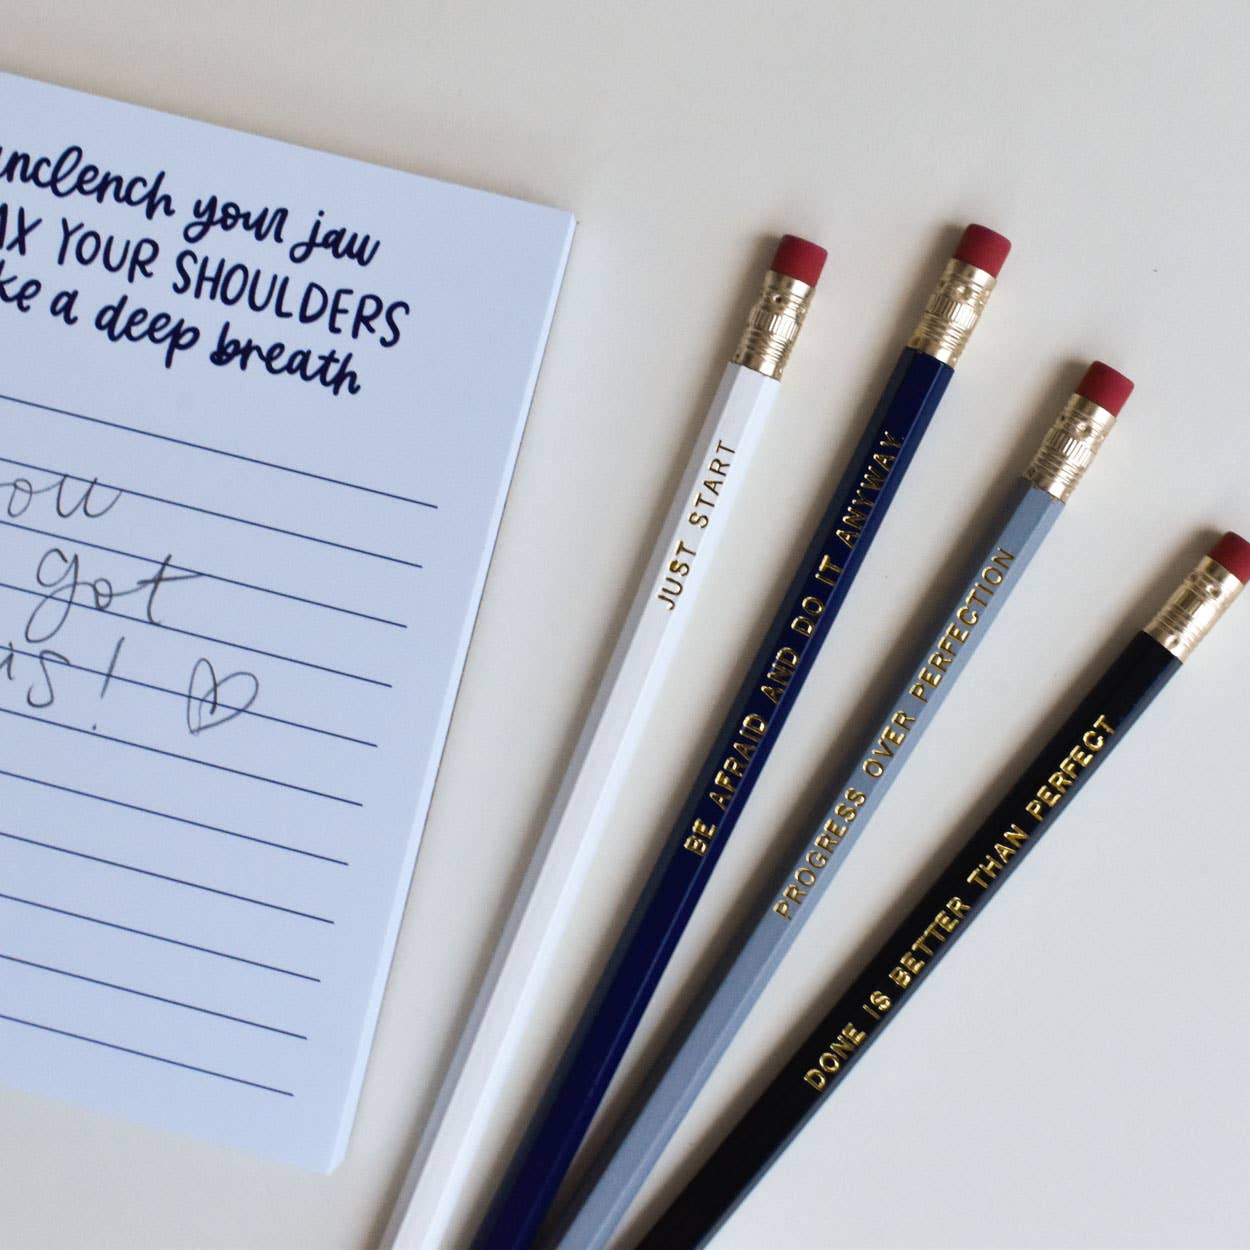 unclench your jaw
YOUR SHOULDERS
a deep breath
got
! ♡
JUST START
BE AFRAID AND DO IT ANYWAY
PROGRESS OVER PERFECTION
DONE IS BETTER THAN PERFECT